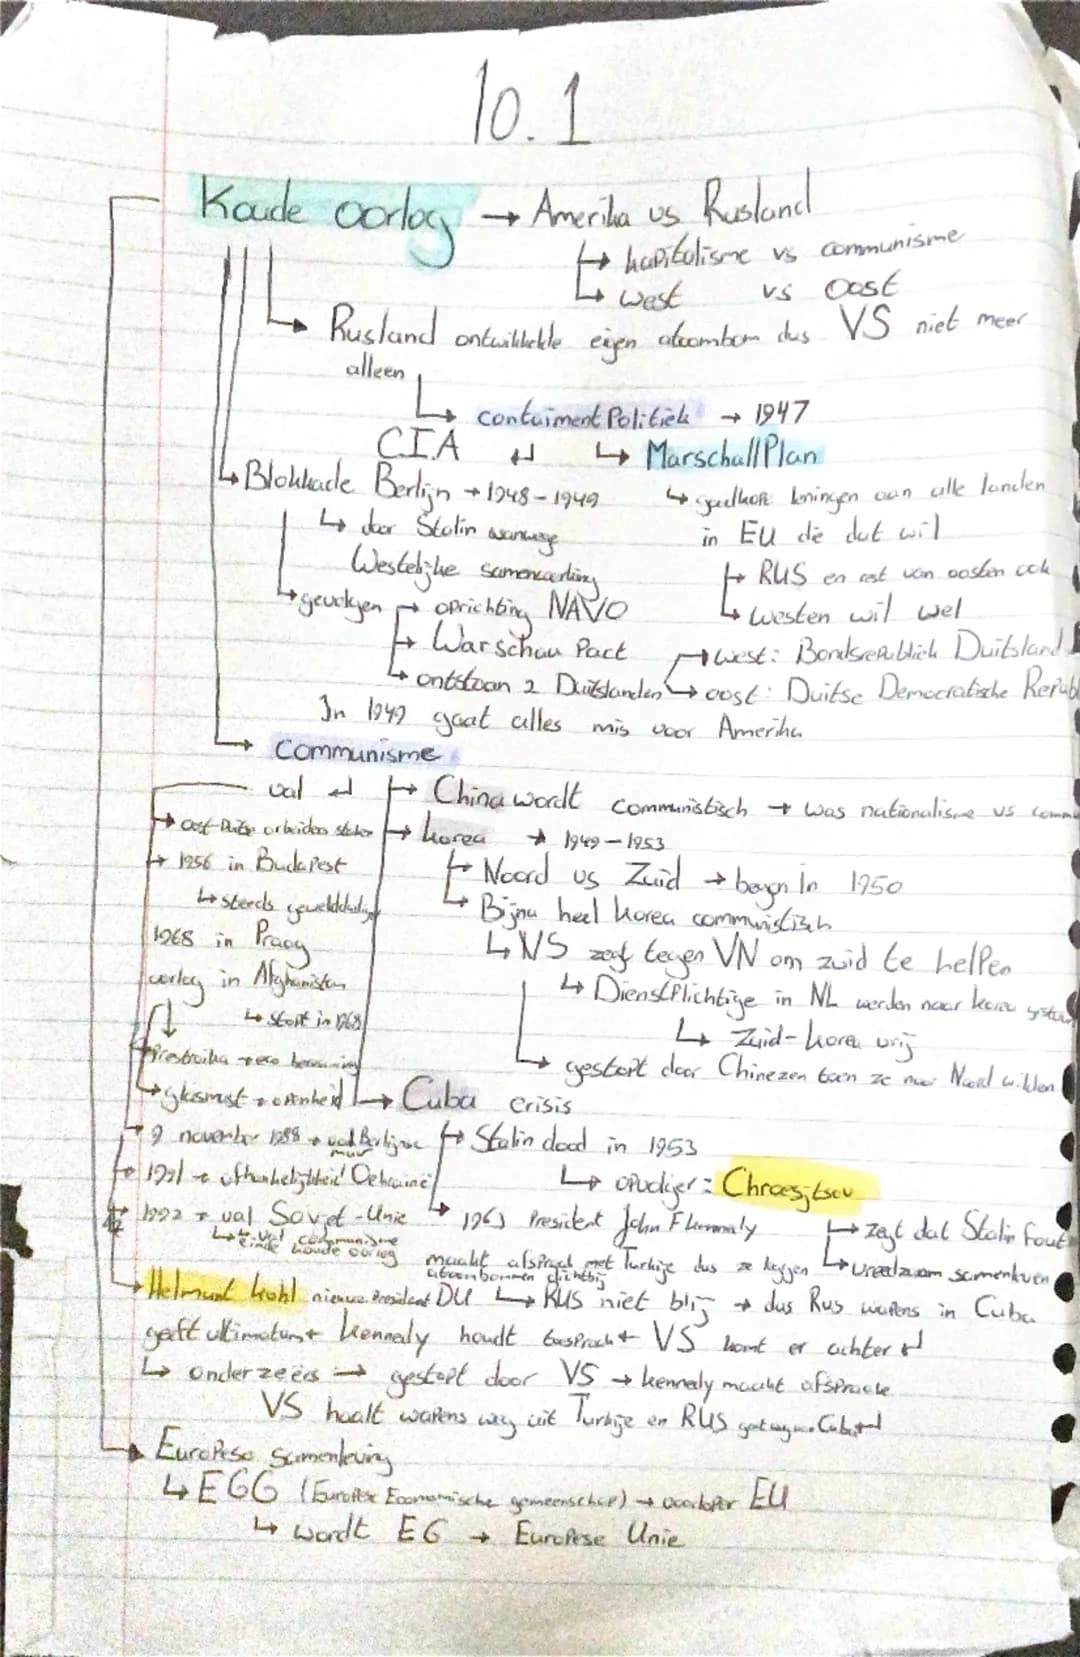 10.1
Koude oorlog → Amerika vs Rusland
↳ kapitalisme vs communisme
↳ west vs Oost
↳ Rusland ontwikkelde eigen atoombom dus VS niet meer
alleen
↳ containment Politiek → 1947
C.I.A ↲ ↳ MarschallPlan
↳ Blokkade Berlijn → 1948-1949
↳ goedkope leningen aan alle landen
in EU die dat wil
↳ door Stalin vanwege
Westelijke samenwerking
↳ RUS en rest van oosten
↳ westen wil wel
↳ gevolgen → oprichting NAVO
→ Warschau Pact
↳ ontstaan 2 Duitslanden
→ West: Bondsrepubliek Duitsland
↳ oost: Duitse Democratische Repub
In 1949 gaat alles mis voor Amerika
→ Communisme
val ↲
→ China wordt communistisch → was nationalisme vs comm
→ oost-Duitse arbeiders staken
→ korea → 1949-1953
→ 1956 in Budapest
↳ steeds
→ Noord vs Zuid → begon In 1950
↳ Bijna heel korea communistisch
1968 in Praag
↳ VS zegt tegen VN om zuid te helpen
oorlog in Afghanistan
↳ Dienstplichtige in NL werden naar korea
↳ start in
↳ Zuid-korea vrij
→ gestopt door Chinezen toen ze naar Noord wilden
Prestroika → eco
↳ glasnost → openheid
→ Cuba crisis
→ 9 november → val Berlijnse
muur
→ Stalin dood in 1953
↳ opvolger: Chroesjtsov
→ 1991 → afhankelijkheid Oekraine
→ 1992 → val Sovjet-Unie
↳ val communisme
einde koude oorlog
↳ President John
→ zegt dat Stalin fout
↳ vreedzaam samenleven
maakt afspraak met Turkije dus ze leggen
atoombommen dichtbij
→ Helmunt kohl nieuwe President DU
↳ RUS niet blij → dus Rus wapens in Cuba
geeft ultimatum ← kennedy houdt toespraak ← VS komt er achter ↲
↳ onderzeërs → gestopt door VS → kennedy maakt afspraak
VS haalt wapens weg uit Turkije en RUS
→ Europese samenleving
↳ EGG (Europese Economische gemeenschap) → voorloper EU
↳ wordt EG → Europese Unie